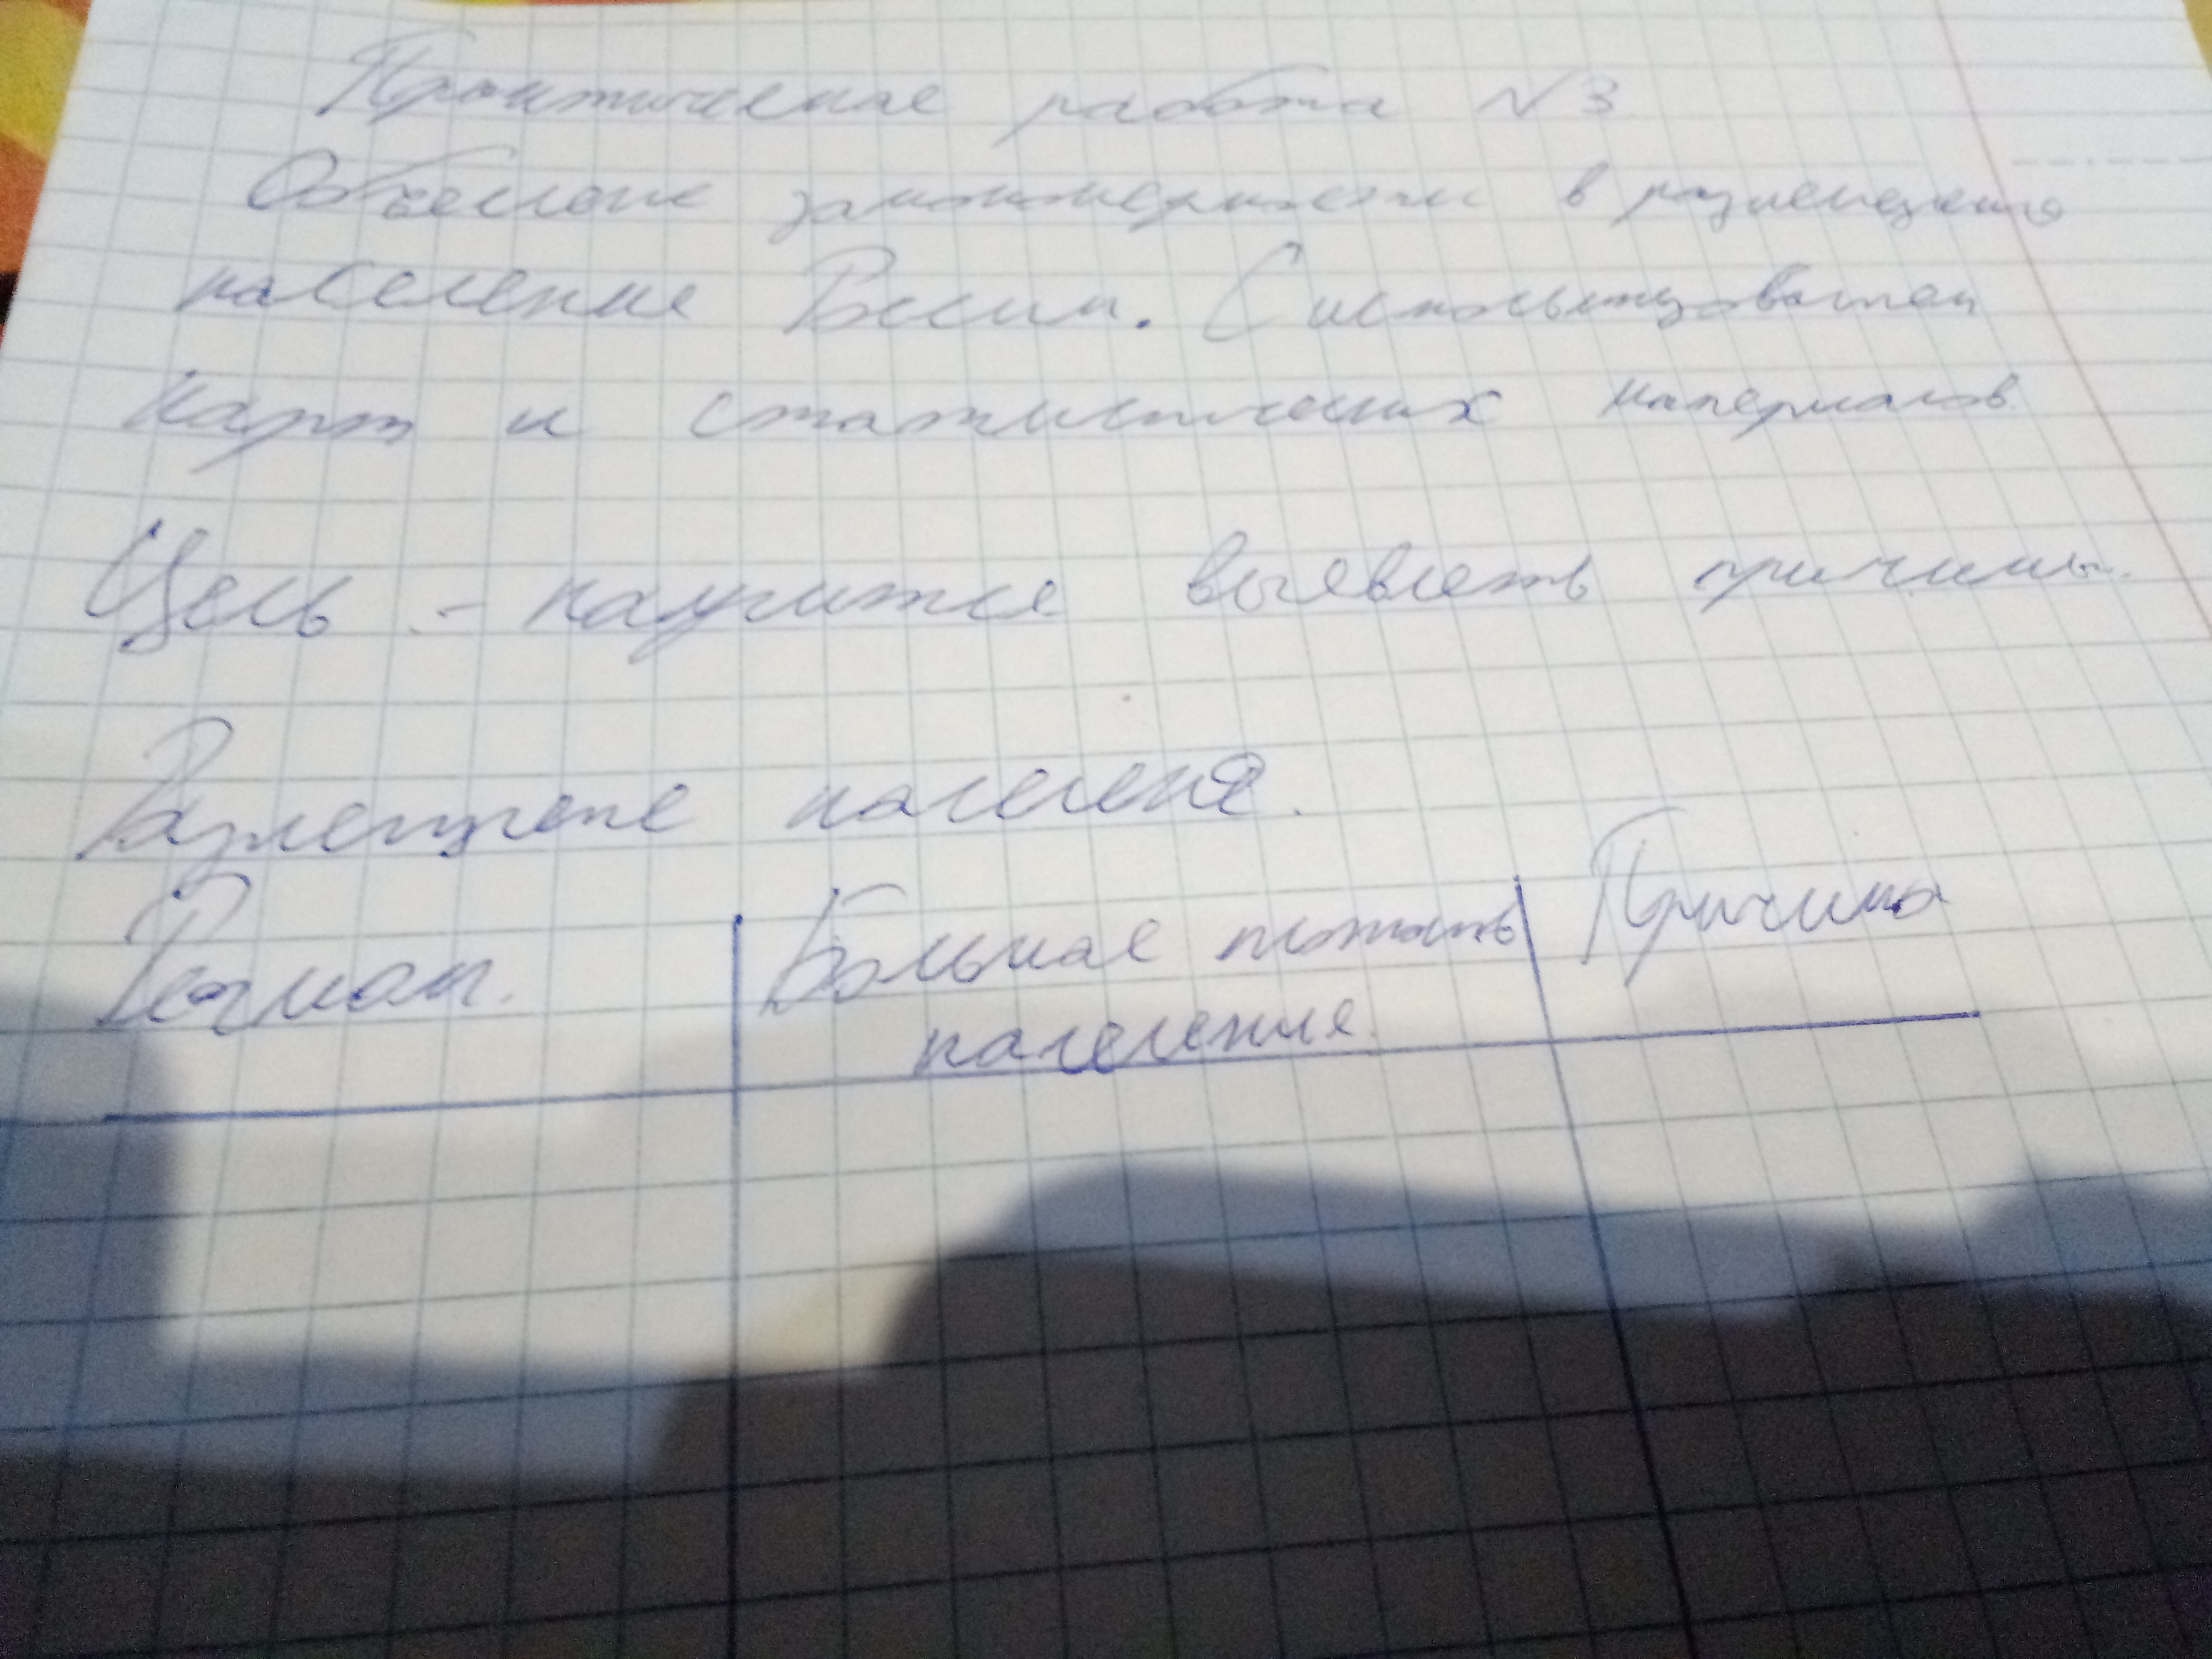 Практическая работа №3
Объеснение закономерности в размещения
население Росии. С использованием
карт и статистических материалов.
Цель - научится выевлеть причины.
Размещение населения.
Регион.
Большае плотность Причина
население.